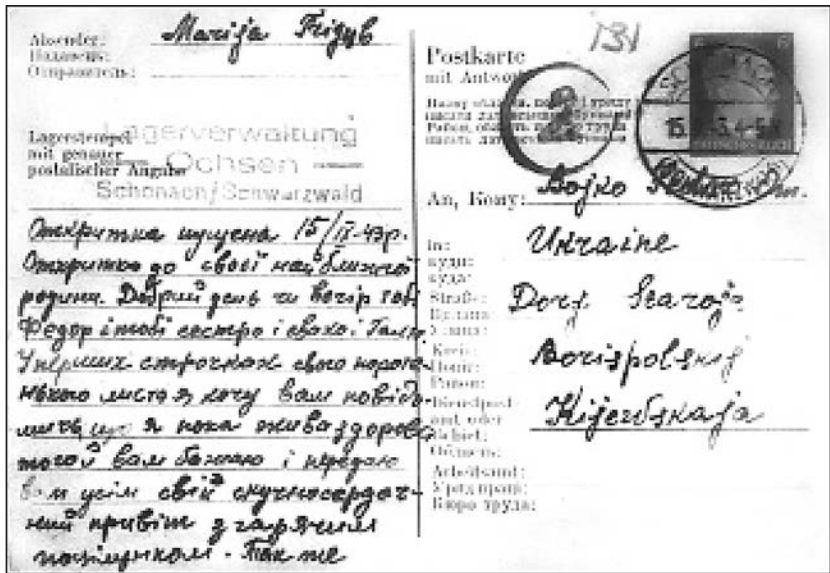 Absender:
Надавець:
Отправитель:
Marija Trigub
Lagerstempel
mit genauer
postalischer Angabe
Lagerverwaltung
Ochsen
Schonach/Schwarzwald
Открритка пущена 15/II-43р.
Открритка до своєї найближчої
родини. Добрий день чи вечір тобі
Федор і тобі сестро і свахо і Галю.
У перших строчках свого корот
нького листа я хочу вам повідо-
мить що я пока жива здорова
того й вам бажаю і передаю
вам усім свій скучносердеч-
ний привіт з гарячим
поцілунком. Так же
Postkarte
mit Antwort
131
15. 3. 43-5
An, Кому: Bojko
in:
куди:
куда:
Ukraine
Straße:
Вулиця:
Улица:
Dorf Staroje
Kreis:
Повіт:
Район:
Borispolskij
Dienstpost-
amt oder
Gebiet:
Область:
Kijewskaja
Arbeitsamt:
Уряд праці:
Бюро труда: